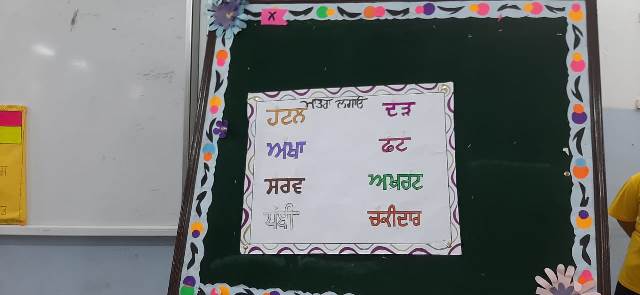 ਮਾਤਰਾ ਲਗਾਓ
ਹਟਲ ਦੜ
ਅਖਾ ਫਟ
ਸਰਵ ਅਖਰਟ
ਚਕੀਦਾਰ